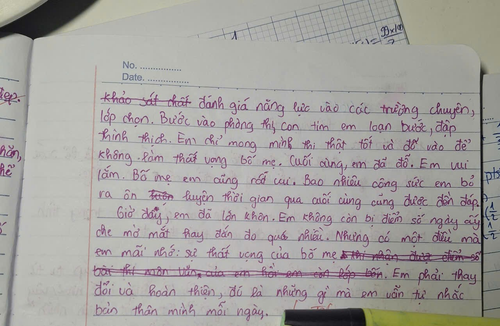 No. ...............
Date. ...............
khảo sát chất đánh giá năng lực vào các trường chuyên,
lớp chọn. Bước vào phòng thi, con tim em loạn bước, đập
thình thịch. Em chỉ mong mình thi thật tốt và đỗ vào để
không làm thất vọng bố mẹ. Cuối cùng, em đã đỗ. Em vui
lắm. Bố mẹ em cũng rất vui. Bao nhiêu công sức em bỏ
ra ôn luyện thời gian qua cuối cùng cũng được đền đáp.
Giờ đây, em đã lớn khôn. Em không còn bị điểm số ngày ấy
che mờ mắt hay đắn đo quá nhiều. Nhưng có một điều mà
em mãi nhớ: sự thất vọng của bố mẹ khi nhận được điểm số
bài thi môn văn của em hồi em còn lớp bốn. Em phải thay
đổi và hoàn thiện, đó là những gì mà em vẫn tự nhắc
bản thân mình mỗi ngày.